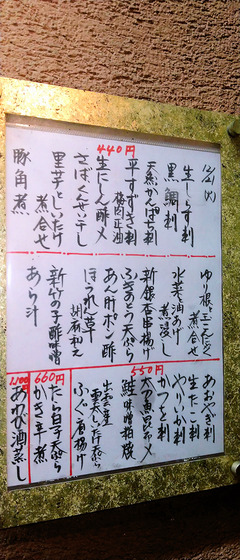 12/21(火)
440円
生しらす刺
黒鯛刺
天然かんぱち刺
平すずき刺
梅肉正油
生にしん酢〆
さばくんせい干し
里芋としいたけ
煮合せ
豚角煮
ゆり根と
煮合せ
水菜油あげ
煮浸し
新銀杏串揚げ
ふきのとう天ぷら
あん肝ポン酢
ほうれん草
胡麻和え
新竹の子酢味噌
あら汁
550円
あおやぎ刺
生たこ刺
やりいか刺
かつを刺
太刀魚昆布〆
鮭味噌粕焼
出雲産
天ぷら
ふぐ唐揚げ
660円
たら白子天ぷら
かき辛煮
1,100
あわび酒蒸し